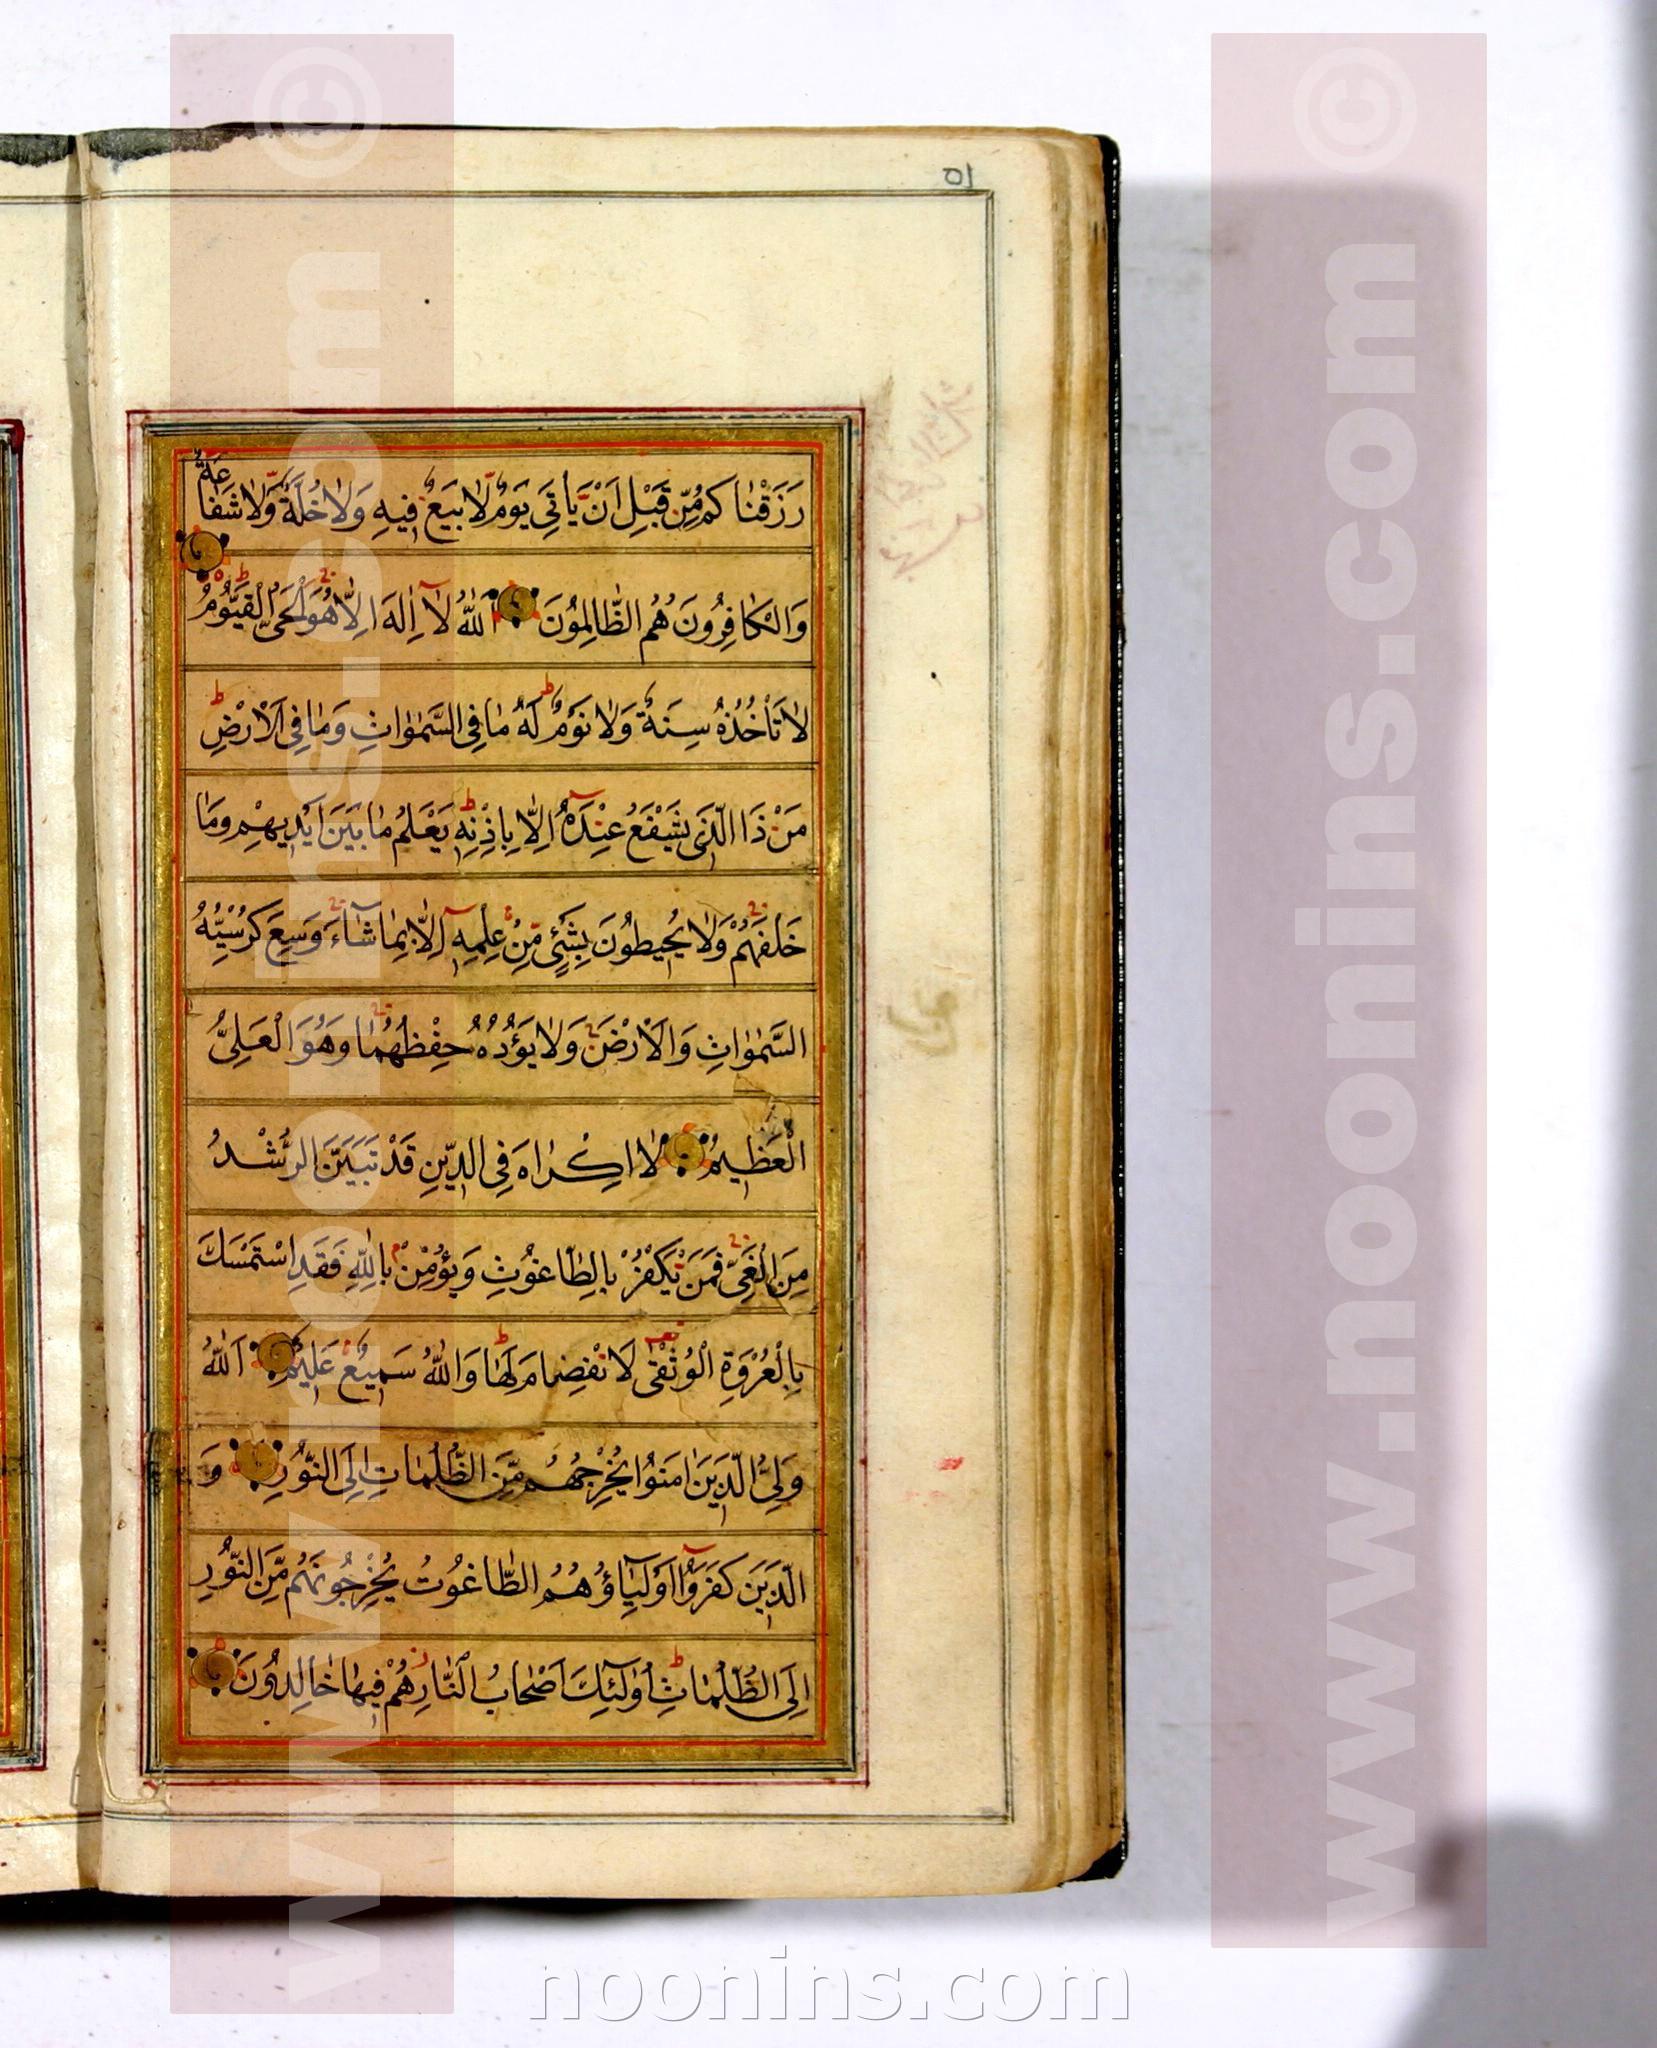 ٥١
رَزَقْنٰاكُمْ مِّنْ قَبْلِ اَنْ يَأْتِىَ يَوْمٌ لٰا بَيْعٌ فِيهِ وَلٰا خُلَّةٌ وَّلٰا شَفٰاعَةٌ
وَالْكٰافِرُونَ هُمُ الظّٰالِمُونَ اَللّٰهُ لٰٓا اِلٰهَ اِلّٰا هُوَ الْحَىُّ الْقَيُّومُ
لٰا تَأْخُذُهُ سِنَةٌ وَلٰا نَوْمٌ لَهُ مٰا فِى السَّمٰوٰاتِ وَمٰا فِى الْاَرْضِ
مَنْ ذَا الَّذِى يَشْفَعُ عِنْدَهُ اِلّٰا بِاِذْنِهِ يَعْلَمُ مٰا بَيْنَ اَيْدِيهِمْ وَمٰا
خَلْفَهُمْ وَلٰا يُحِيطُونَ بِشَىْءٍ مِّنْ عِلْمِهِ اِلّٰا بِمٰا شٰٓاءَ وَسِعَ كُرْسِيُّهُ
السَّمٰوٰاتِ وَالْاَرْضَ وَلٰا يَؤُدُهُ حِفْظُهُمٰا وَهُوَ الْعَلِىُّ
الْعَظِيمُ لٰا اِكْرٰاهَ فِى الدِّينِ قَدْ تَبَيَّنَ الرُّشْدُ
مِنَ الْغَىِّ فَمَنْ يَكْفُرْ بِالطّٰاغُوتِ وَيُؤْمِنْ بِاللّٰهِ فَقَدِ اسْتَمْسَكَ
بِالْعُرْوَةِ الْوُثْقٰى لَا انْفِصٰامَ لَهٰا وَاللّٰهُ سَمِيعٌ عَلِيمٌ اَللّٰهُ
وَلِىُّ الَّذِينَ اٰمَنُوا يُخْرِجُهُمْ مِّنَ الظُّلُمٰاتِ اِلَى النُّورِ وَ
الَّذِينَ كَفَرُوٓا اَوْلِيٰٓاؤُهُمُ الطّٰاغُوتُ يُخْرِجُونَهُمْ مِّنَ النُّورِ
اِلَى الظُّلُمٰاتِ اُولٰٓئِكَ اَصْحٰابُ النّٰارِ هُمْ فِيهٰا خٰالِدُونَ
© www.noonins.com
© www.noonins.com
noonins.com